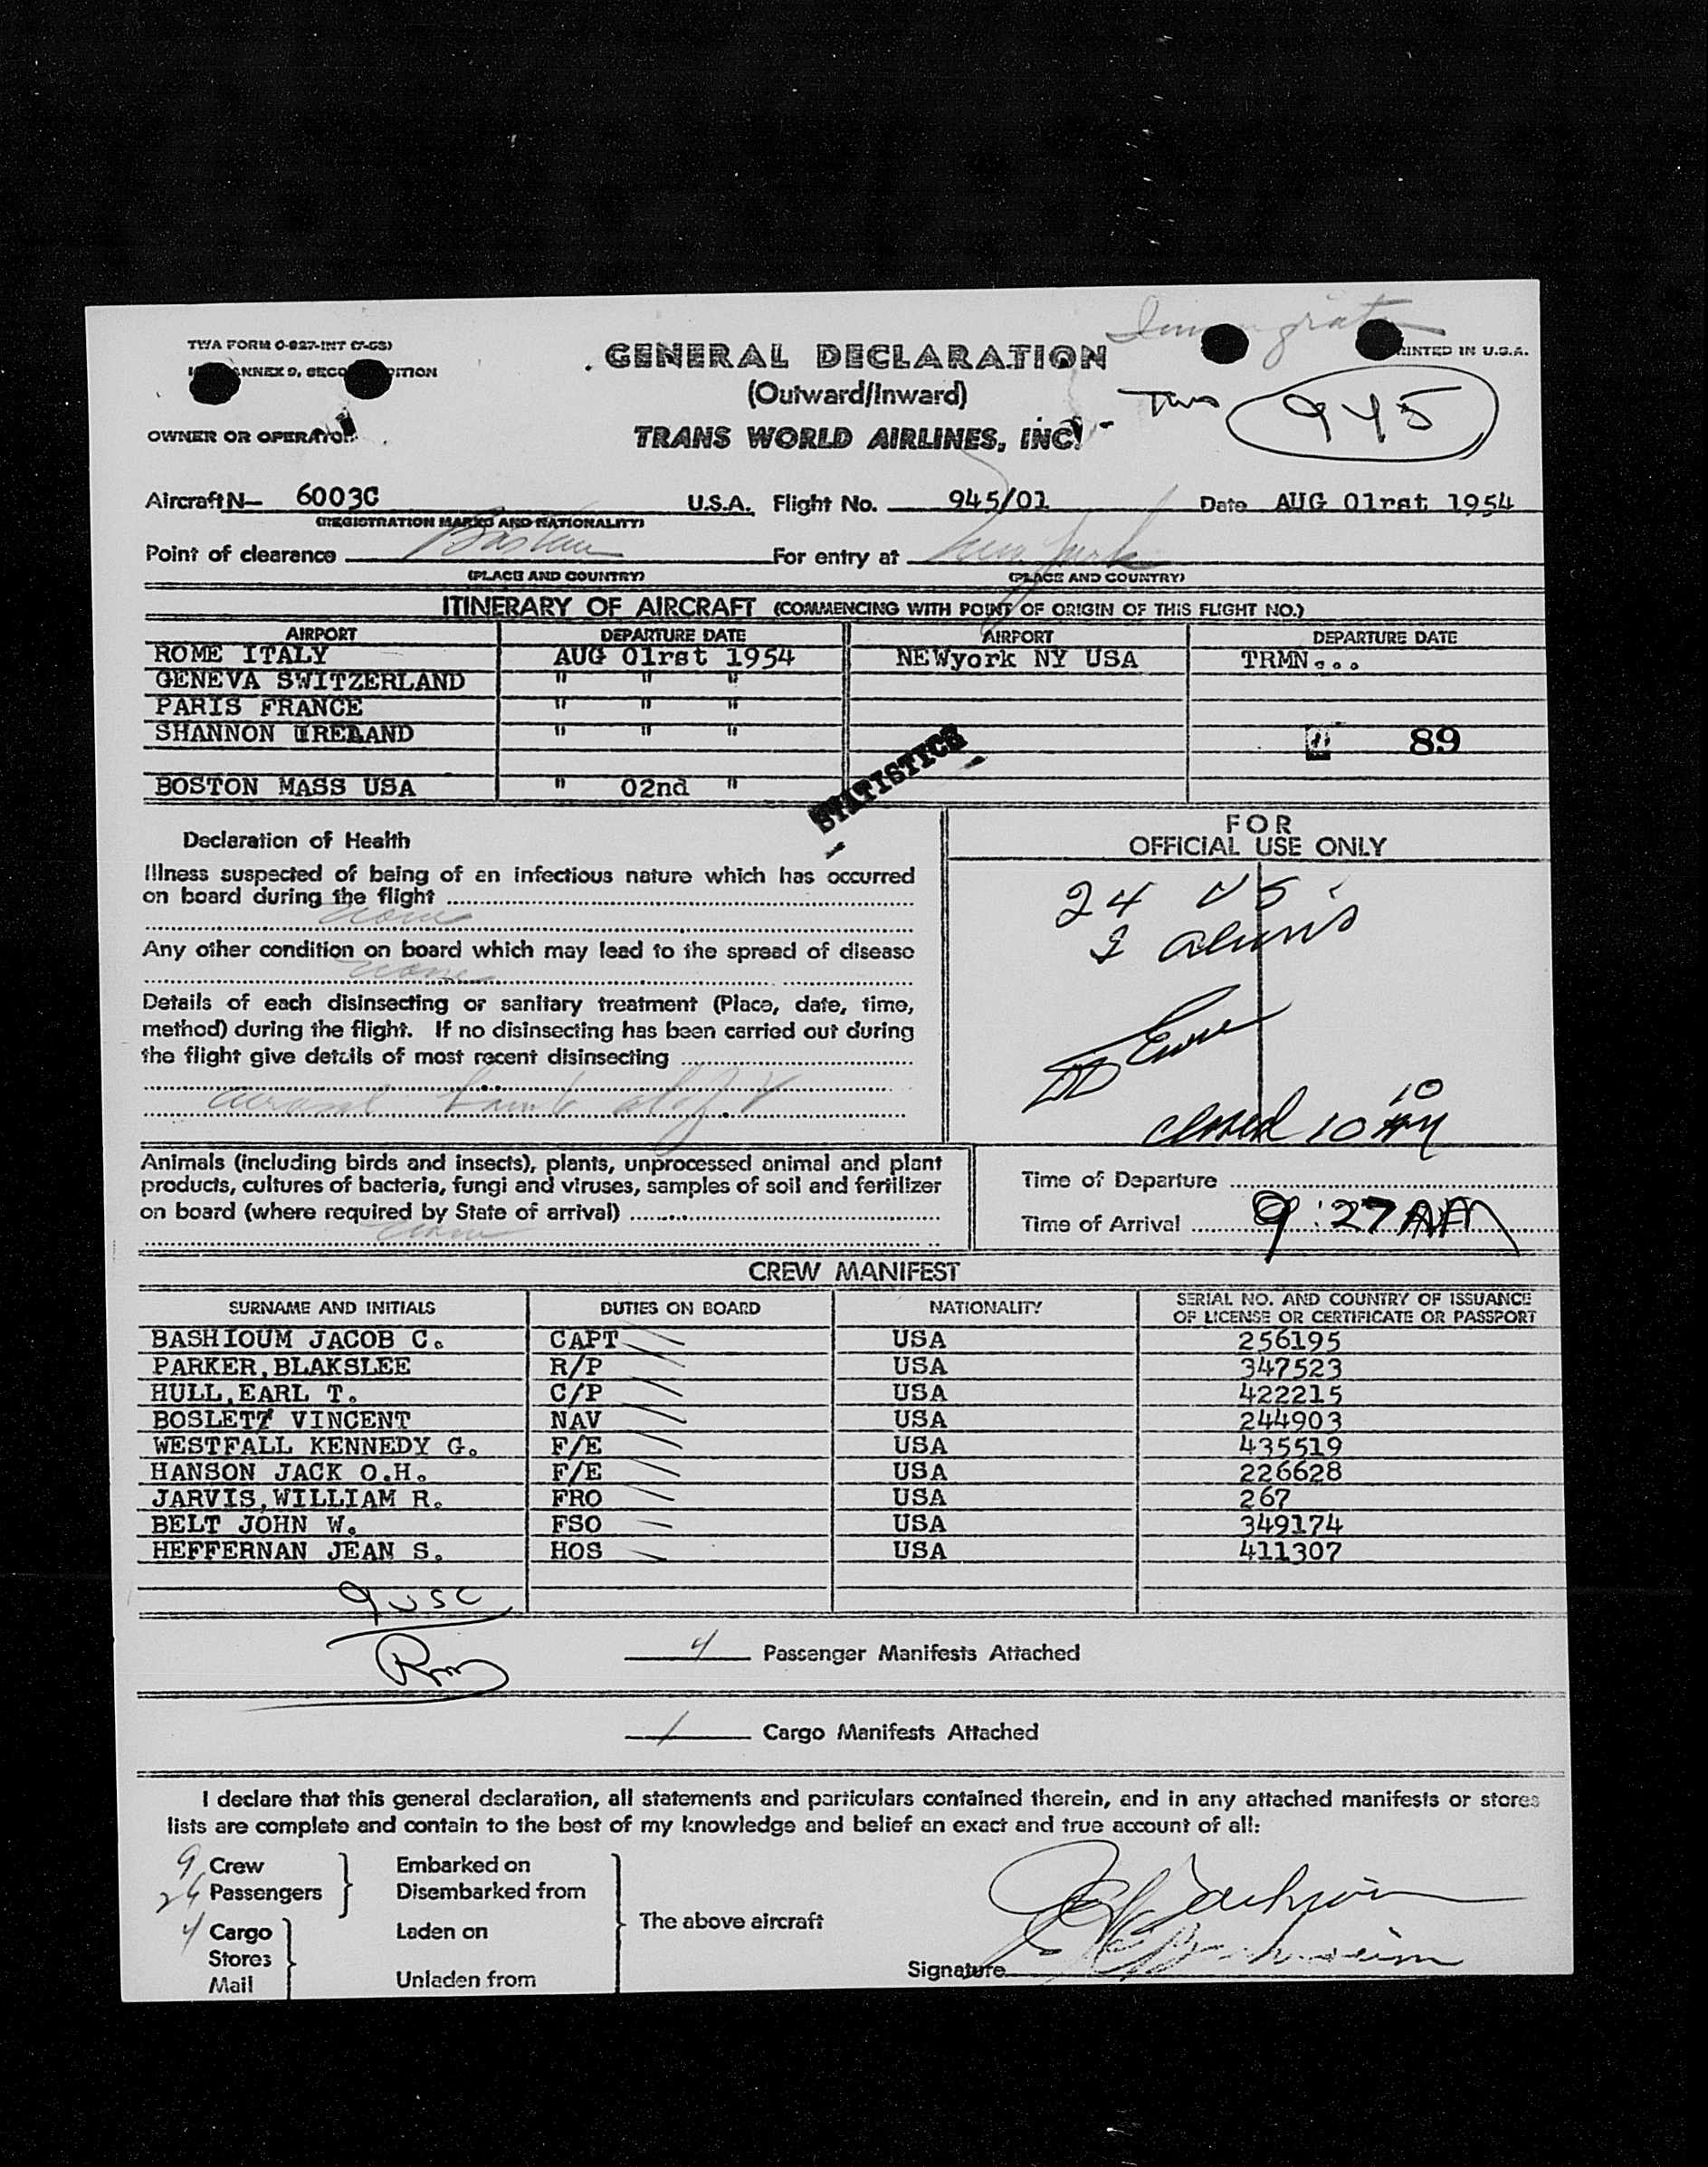 TWA FORM O-827-INT (7-53)
PRINTED IN U.S.A.
ANNEX 9, SECOND EDITION
GENERAL DECLARATION
(Outward/Inward)
TWA 945
OWNER OR OPERATOR
TRANS WORLD AIRLINES, INC.
Aircraft N— 6003C U.S.A. Flight No. 945/01 Date AUG 01rst 1954
(REGISTRATION MARKS AND NATIONALITY)
Point of clearance Boston For entry at New York
(PLACE AND COUNTRY) (PLACE AND COUNTRY)
ITINERARY OF AIRCRAFT (COMMENCING WITH POINT OF ORIGIN OF THIS FLIGHT NO.)
AIRPORT DEPARTURE DATE AIRPORT DEPARTURE DATE
ROME ITALY AUG 01rst 1954 NEWyork NY USA TRMN...
GENEVA SWITZERLAND " " "
PARIS FRANCE " " "
SHANNON IRELAND " " " 89
BOSTON MASS USA " 02nd "
STATISTICS
Declaration of Health
Illness suspected of being of an infectious nature which has occurred
on board during the flight
none
Any other condition on board which may lead to the spread of disease
none
Details of each disinsecting or sanitary treatment (Place, date, time,
method) during the flight. If no disinsecting has been carried out during
the flight give details of most recent disinsecting
FOR
OFFICIAL USE ONLY
24 US
2 aliens
closed 10 10 AM
Animals (including birds and insects), plants, unprocessed animal and plant
products, cultures of bacteria, fungi and viruses, samples of soil and fertilizer
on board (where required by State of arrival)
none
Time of Departure
Time of Arrival 9:27 AM
CREW MANIFEST
SURNAME AND INITIALS DUTIES ON BOARD NATIONALITY SERIAL NO. AND COUNTRY OF ISSUANCE
OF LICENSE OR CERTIFICATE OR PASSPORT
BASHIOUM JACOB C. CAPT USA 256195
PARKER,BLAKSLEE R/P USA 347523
HULL,EARL T. C/P USA 422215
BOSLETT VINCENT NAV USA 244903
WESTFALL KENNEDY G. F/E USA 435519
HANSON JACK O.H. F/E USA 226628
JARVIS,WILLIAM R. FRO USA 267
BELT JOHN W. FSO USA 349174
HEFFERNAN JEAN S. HOS USA 411307
9 USC
4 Passenger Manifests Attached
1 Cargo Manifests Attached
I declare that this general declaration, all statements and particulars contained therein, and in any attached manifests or stores
lists are complete and contain to the best of my knowledge and belief an exact and true account of all:
9 Crew
26 Passengers
Embarked on
Disembarked from
4 Cargo
Stores
Mail
Laden on
Unladen from
The above aircraft
Signature